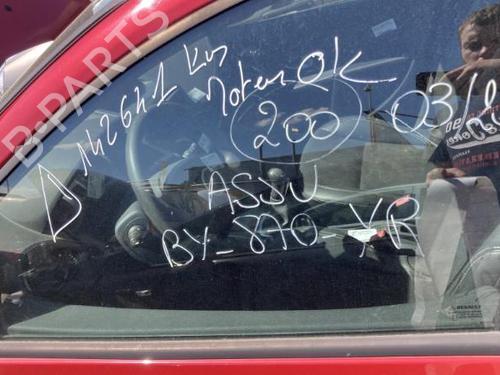 B-PARTS
D 142641 Km
Moteur OK
200
03/
ASSU
BY-870-YR
RENAULT